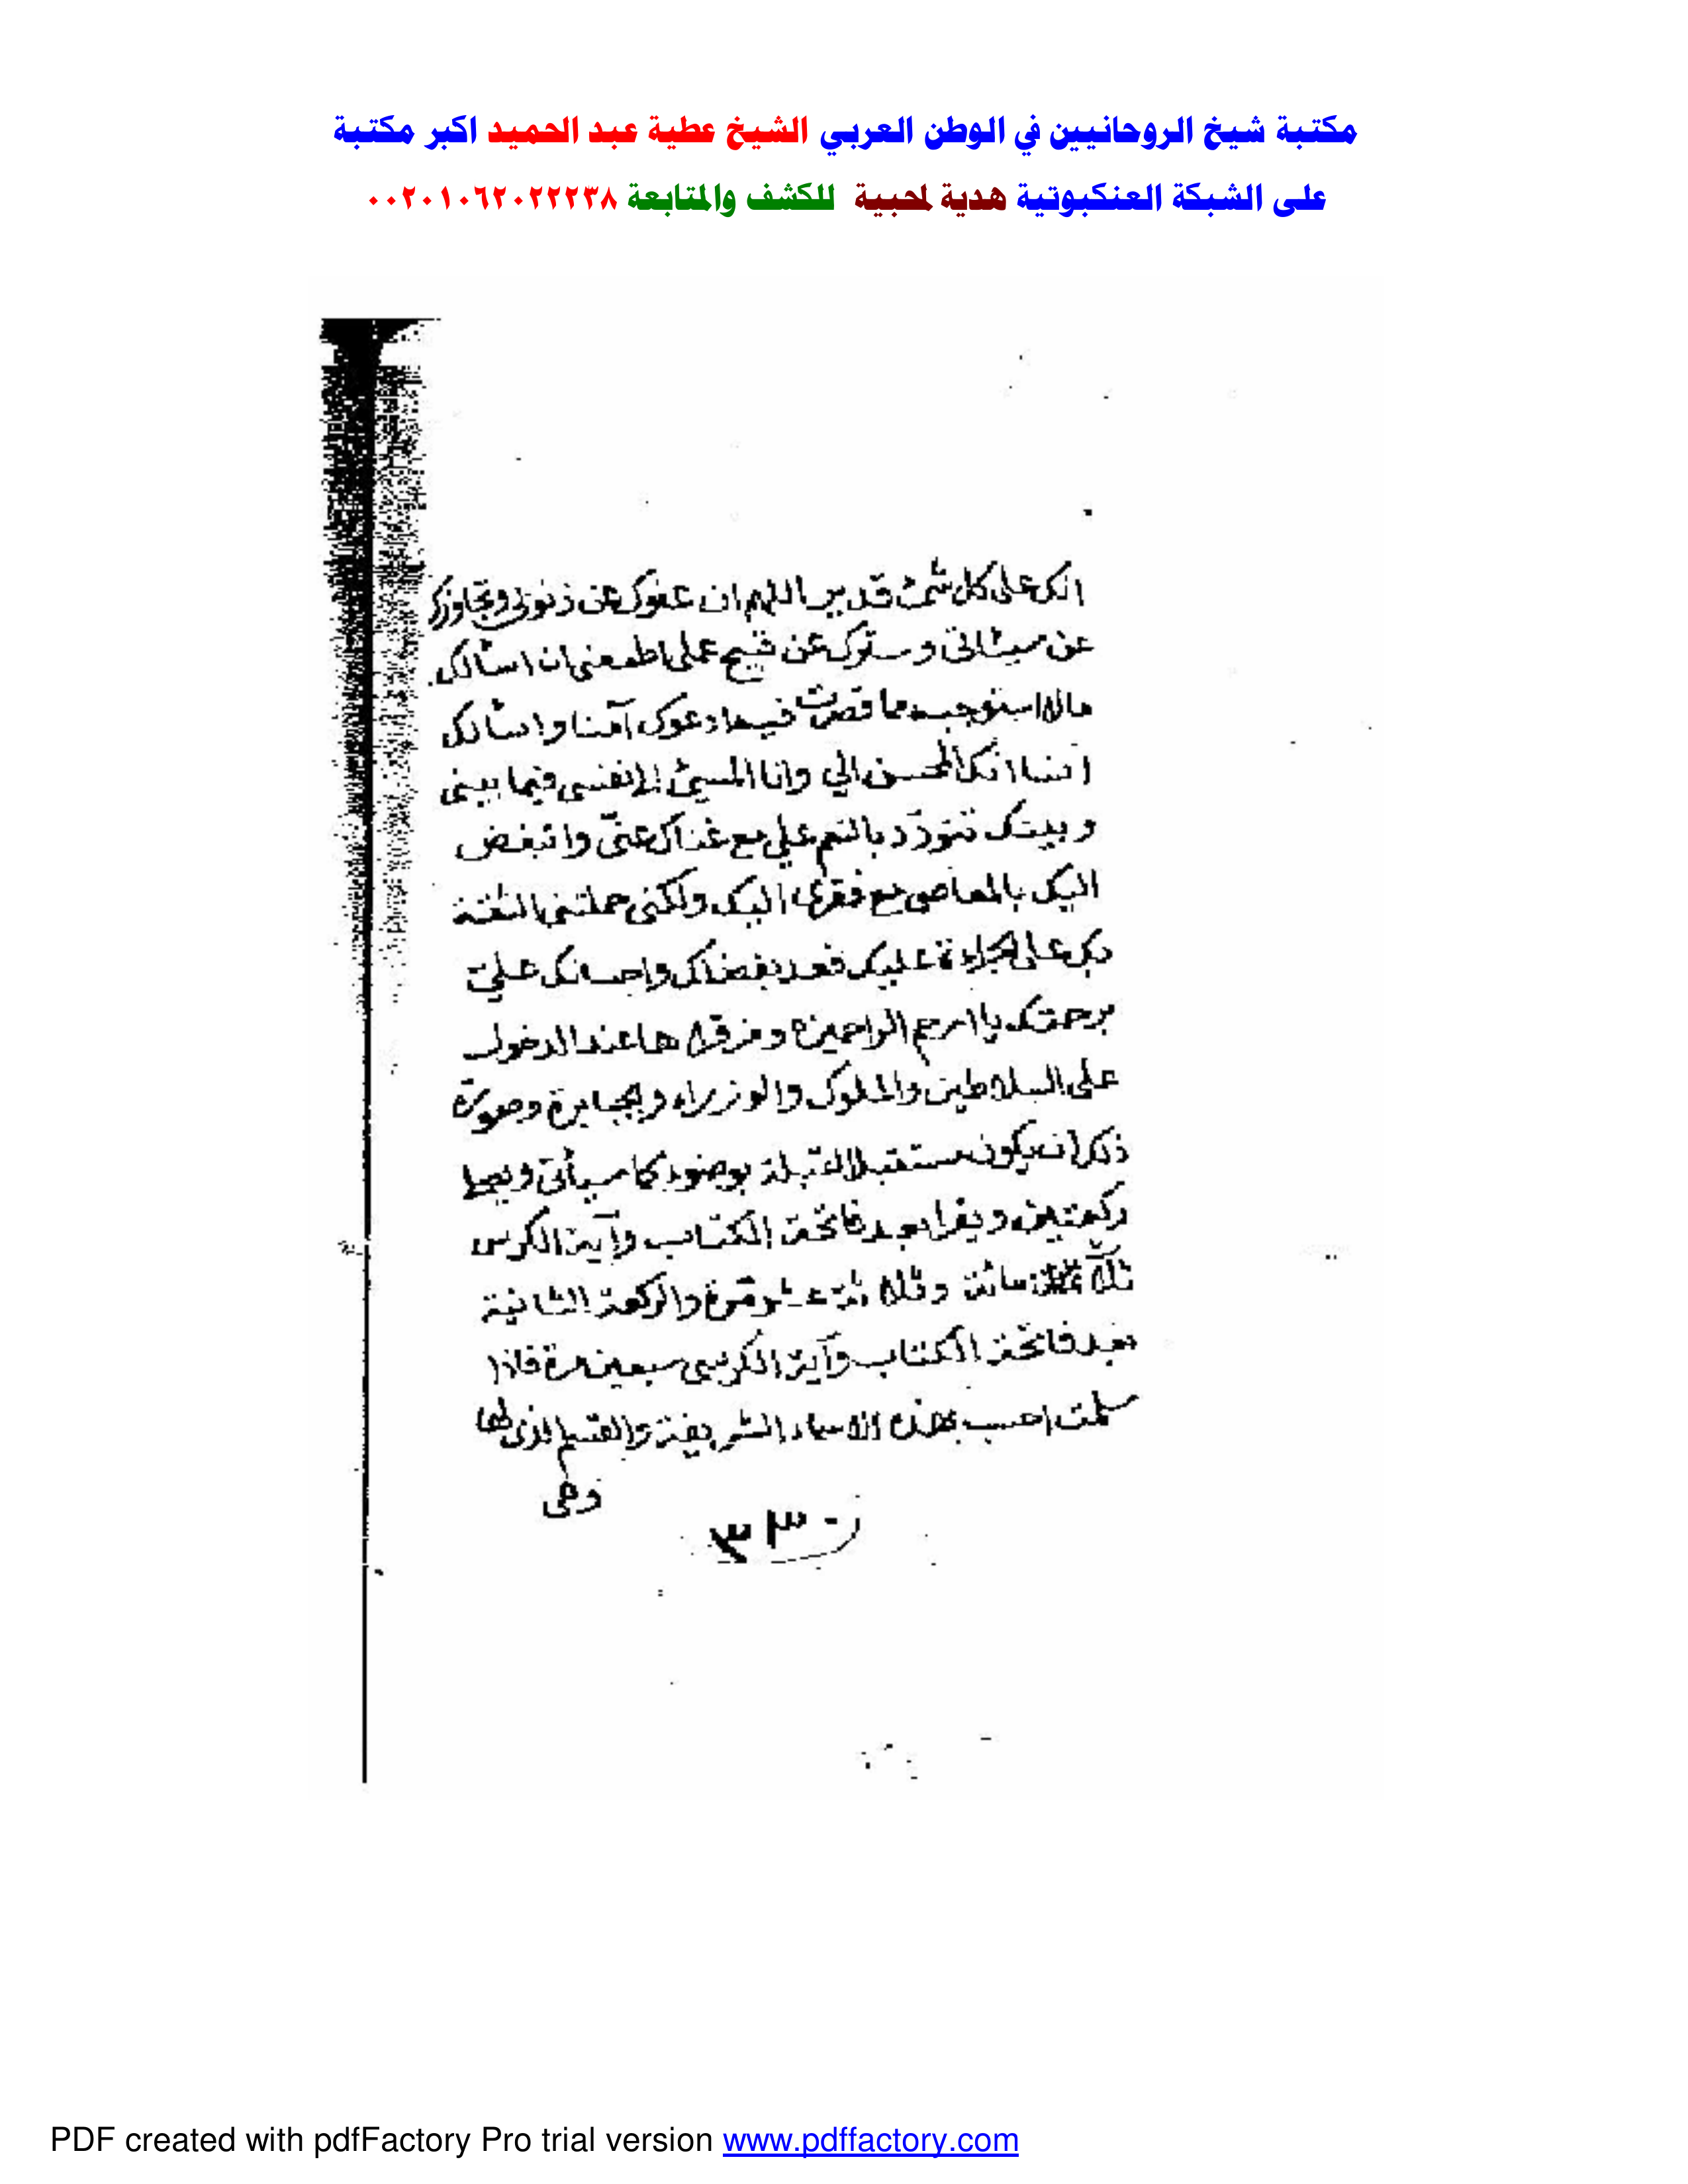 مكتبة شيخ الروحانيين في الوطن العربي الشيخ عطية عبد الحميد اكبر مكتبة
على الشبكة العنكبوتية هدية لمحبية للكشف والمتابعة ٠٠٢٠١٠٦٢٠٢٢٢٣٨
انك على كل شئ قدير اللهم ان عفوك عن ذنوبي وتجاوزك
عن سيئاتي وسترك عن قبيح عملي اطمعني ان اسألك
مالا استوجبه مما قصرت فيه ادعوك آمنا واسألك
انسا انك المحسن الي وانا المسئ الى نفسي فيما بيني
وبينك تتودد بالنعم علي مع غناك عني واتبغض
اليك بالمعاصي مع فقري اليك ولكن حملتني الثقة
بك على الجراءة عليك فعد بفضلك واحسانك علي
برحمتك يا ارحم الراحمين ومن قراها عند الدخول
على السلاطين والملوك والوزراء والجبابرة وصورة
ذكر ان يكون مستقبل القبلة بوضوء كما سيأتي ويصلي
ركعتين ويقرا بعد فاتحة الكتاب وآية الكرسي
ثلاثمائة وثلاثة عشر مرة والركعة الثانية
بعد فاتحة الكتاب وآية الكرسي سبعين مرة فاذا
سلمت احسب بهذه الاسماء الشريفة والقسم الذي لها
وهي
٣٣
PDF created with pdfFactory Pro trial version www.pdffactory.com